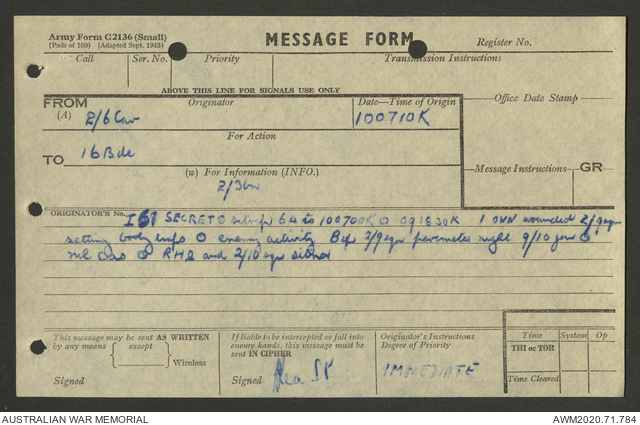 Army Form C2136 (Small)
(Pads of 100) (Adapted Sept. 1943)
MESSAGE FORM
Register No.
Call Ser. No. Priority Transmission Instructions
ABOVE THIS LINE FOR SIGNALS USE ONLY
FROM Originator Date–Time of Origin Office Date Stamp
(A) 2/6 Cav 100710K
For Action
TO 16 Bde
(w) For Information (INFO.) Message Instructions GR
2/3 bn
ORIGINATOR'S No. SECRET O sitrep 64 to 100700K O 091830K 1 OWN wounded
body O enemy activity perimeter night 9/10
O and 2/10
This message may be sent AS WRITTEN
by any means except Wireless
Signed
If liable to be intercepted or fall into
enemy hands, this message must be
sent IN CIPHER
Signed
Originator's Instructions
Degree of Priority
IMMEDIATE
Time System Op
THI or TOR
Time Cleared
AUSTRALIAN WAR MEMORIAL AWM2020.71.784